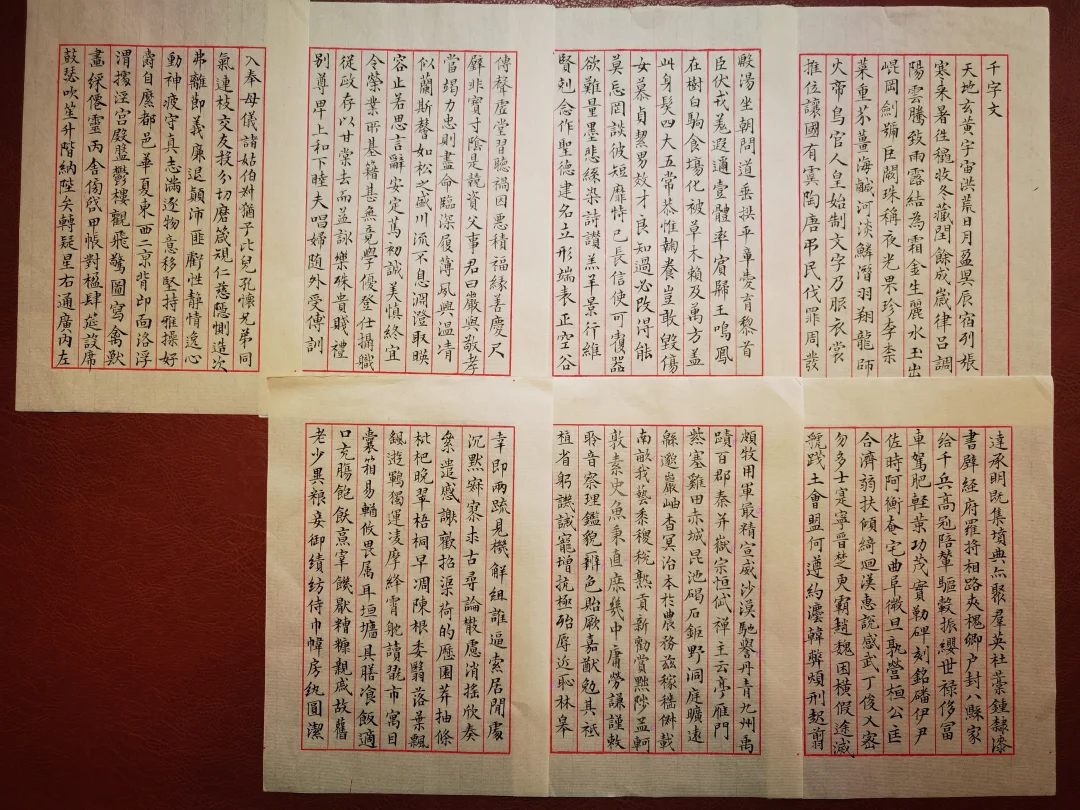 千字文
天地玄黃宇宙洪荒日月盈昃辰宿列張
寒來暑往穐收冬藏閏餘成歲律呂調
陽雲騰致雨露結為霜金生麗水玉出
崐岡劍號巨闕珠稱夜光果珍李柰
菜重芥薑海鹹河淡鱗潛羽翔龍師
火帝鳥官人皇始制文字乃服衣裳
推位讓國有虞陶唐弔民伐罪周發
殷湯坐朝問道垂拱平章愛育黎首
臣伏戎羌遐邇壹體率賓歸王鳴鳳
在樹白駒食場化被草木賴及萬方蓋
此身髮四大五常恭惟鞠養豈敢毀傷
女慕貞絜男效才良知過必改得能
莫忘罔談彼短靡恃己長信使可覆器
欲難量墨悲絲染詩讚羔羊景行維
賢剋念作聖德建名立形端表正空谷
傳聲虛堂習聽禍因惡積福緣善慶尺
璧非寶寸陰是競資父事君曰嚴與敬孝
當竭力忠則盡命臨深履薄夙興溫凊
似蘭斯馨如松之盛川流不息淵澄取暎
容止若思言辭安定篤初誠美慎終宜
令榮業所基籍甚無竟學優登仕攝職
從政存以甘棠去而益詠樂殊貴賤禮
別尊卑上和下睦夫唱婦隨外受傅訓
入奉母儀諸姑伯叔猶子比兒孔懷兄弟同
氣連枝交友投分切磨箴規仁慈隱惻造次
弗離節義廉退顛沛匪虧性靜情逸心
動神疲守真志滿逐物意移堅持雅操好
爵自縻都邑華夏東西二京背邙面洛浮
渭據涇宮殿盤鬱樓觀飛驚圖寫禽獸
畫綵僊靈丙舍傍啟甲帳對楹肆筵設席
鼓瑟吹笙升階納陛弁轉疑星右通廣內左
達承明既集墳典亦聚群英杜稾鍾隸漆
書壁經府羅將相路夾槐卿戶封八縣家
給千兵高冠陪輦驅轂振纓世祿侈富
車駕肥輕策功茂實勒碑刻銘磻伊尹
佐時阿衡奄宅曲阜微旦孰營桓公匡
合濟弱扶傾綺迴漢惠說感武丁俊乂密
勿多士寔寧晉楚更霸趙魏困橫假途滅
虢踐土會盟何遵約灋韓弊煩刑起翦
頗牧用軍最精宣威沙漠馳譽丹青九州禹
蹟百郡秦并嶽宗恒岱禪主云亭雁門
紫塞雞田赤城昆池碣石鉅野洞庭曠遠
緜邈巖岫杳冥治本於農務茲稼穡俶載
南畝我藝黍稷稅熟貢新勸賞黜陟孟軻
敦素史魚秉直庶幾中庸勞謙謹敕
聆音察理鑑貌辨色貽厥嘉猷勉其祗
植省躬譏誡寵增抗極殆辱近恥林皋
幸即兩疏見機解組誰逼索居閒處
沉默寂寥求古尋論散慮逍搖欣奏
絫遣感謝歡招渠荷的歷園莽抽條
枇杷晚翠梧桐早凋陳根委翳落葉飄
颻遊鵾獨運凌摩絳霄耽讀翫市寓目
囊箱易輶攸畏属耳垣墻具膳飡飯適
口充腸飽飫烹宰饑厭糟糠親戚故舊
老少異糧妾御績紡侍巾帷房紈圓潔